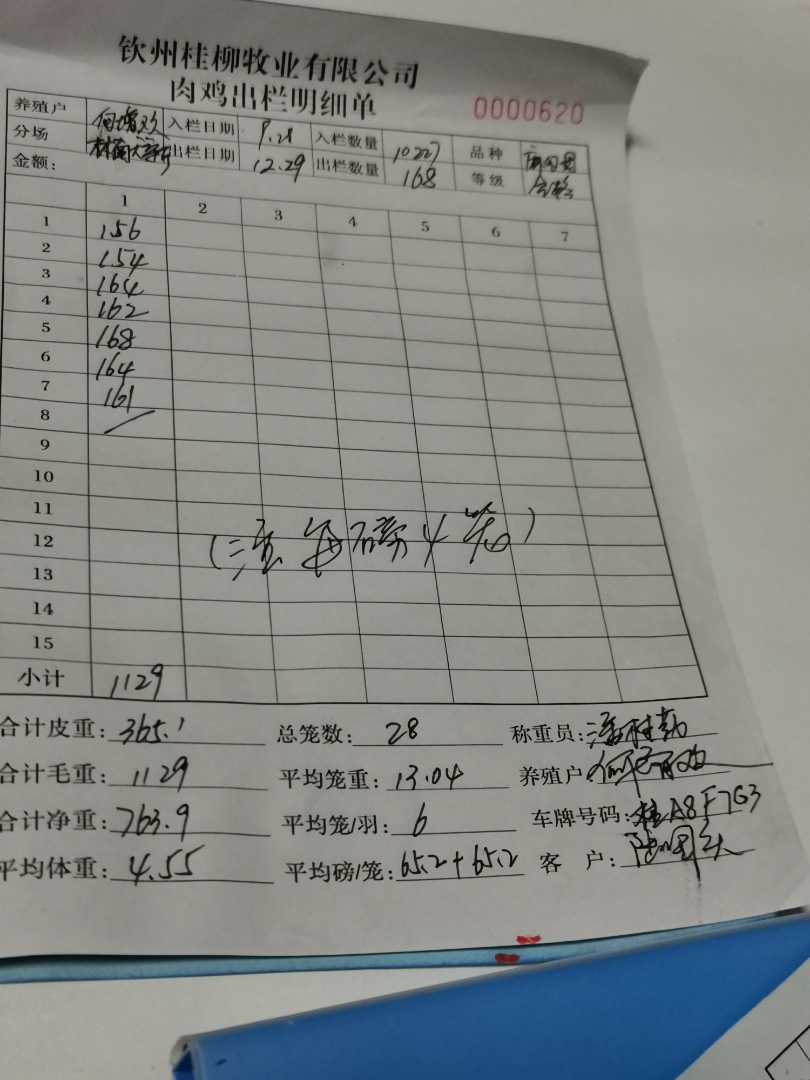 钦州桂柳牧业有限公司
肉鸡出栏明细单 0000620
养殖户 入栏日期 9.28 入栏数量 10227 品种
分场 出栏日期 12.29 出栏数量 168 等级
金额:
1 2 3 4 5 6 7
1 156
2 154
3 164
4 162
5 168
6 164
7 161
8
9
10
11
12
(注每磅4笼)
13
14
15
小计 1129
合计皮重: 365.1 总笼数: 28 称重员:
合计毛重: 1129 平均笼重: 13.04 养殖户
合计净重: 763.9 平均笼/羽: 6 车牌号码: 桂A8F7G3
平均体重: 4.55 平均磅/笼: 65.2+65.2 客 户: